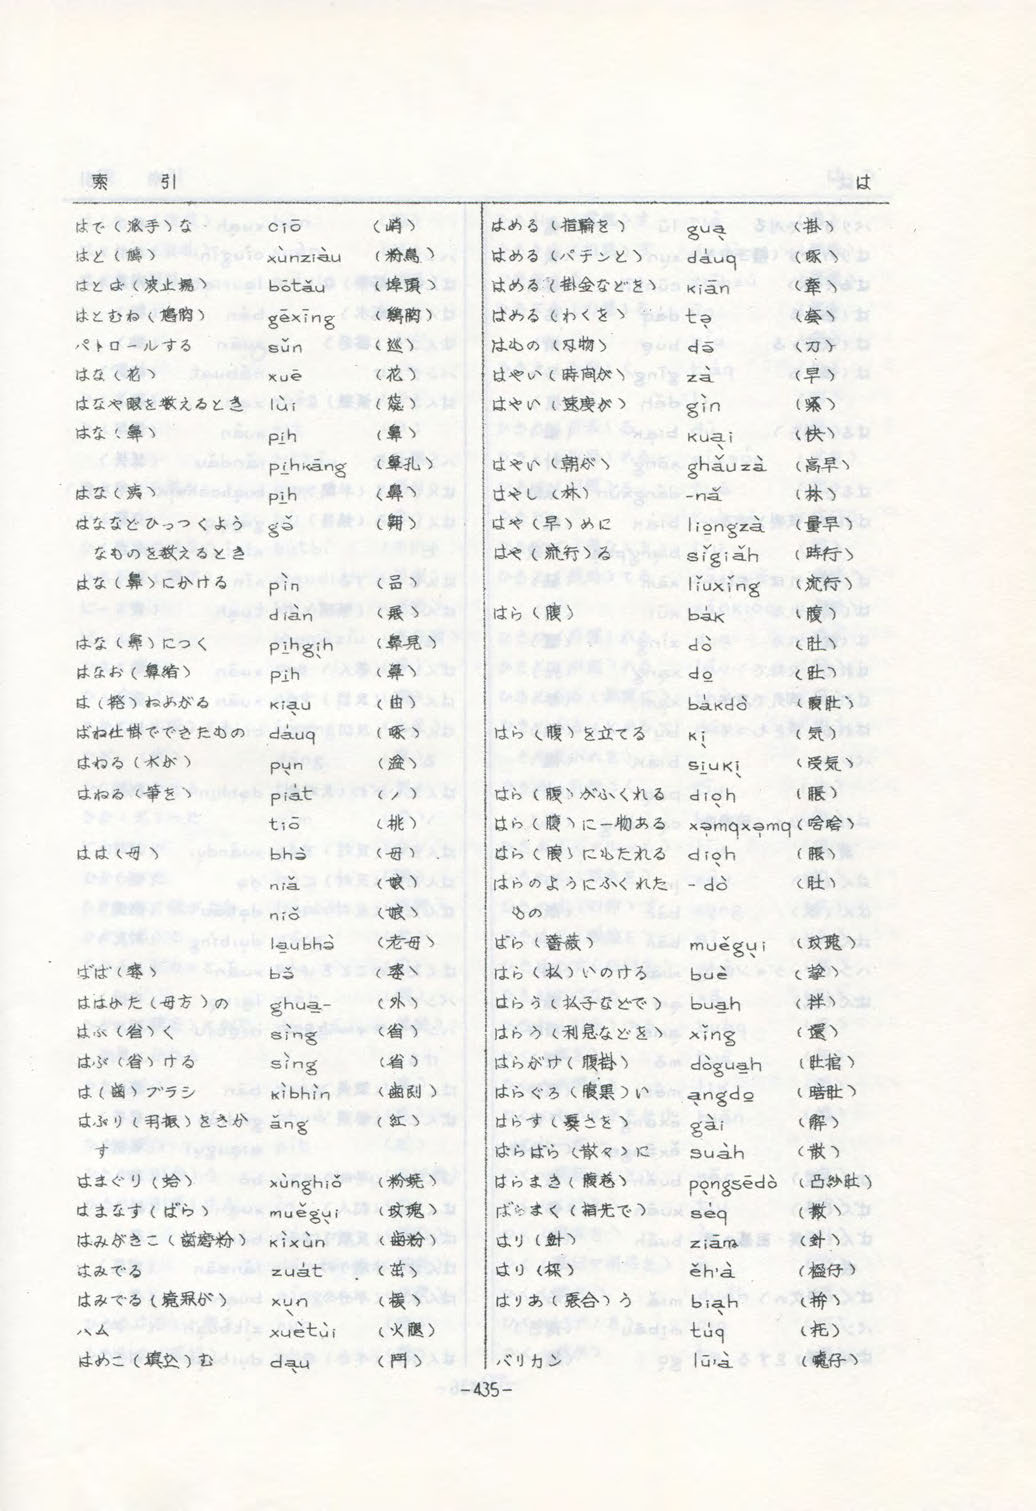 索 引 は
はで（派手）な ciō （峭）
はと（鳩） xùnziàu （粉鳥）
はとば（波止場） bōtǎu （埠頭）
はとむね（鳩胸） gēxīng （鷄胸）
パトロールする sǔn （巡）
はな（花） xuē （花）
はなや眼を数えるとき lùi （蕊）
はな（鼻） pi̱h （鼻）
pi̱hkāng （鼻孔）
はな（洟） pi̱h （鼻）
はななどひっつくよう gǒ
なものを数えるとき
はな（鼻）にかける pìn （品）
diàn （展）
はな（鼻）につく pi̱hgi̱h （鼻見）
はなお（鼻緒） pi̱h （鼻）
は（撥）ねあがる kia̱u （曲）
ばね仕掛でできたもの dáuq （啄）
はねる（水が） pu̱n （湓）
はねる（筆を） piát （八）
tiō （挑）
はは（母） bhə̀ （母）
niǎ （娘）
niǒ （娘）
la̱ubhə̀ （老母）
ばば（婆） bǒ （婆）
ははかた（母方）の ghua̱- （外）
はぶ（省）く sìng （省）
はぶ（省）ける sìng （省）
は（歯）ブラシ kìbhìn （歯刷）
はぶり（羽振）をきか ǎng （紅）
す
はまぐり（蛤） xùnghiō （粉蟯）
はまなす（ばら） muěgu̱i （玫瑰）
はみがきこ（歯磨粉） kìxùn （歯粉）
はみでる zuát （茁）
はみでる xu̱n
ハム xuètùi （火腿）
はめこ（填込）む da̱u （鬥）
はめる（指輪を） gua̱ （掛）
はめる（パチンと） dáuq （啄）
はめる（掛金などを） kiān （牽）
はめる（わくを） tə̱ （套）
はもの（刃物） dō （刀）
はやい（時間が） zà （早）
はやい（速度が） gìn （緊）
kua̱i （快）
はやい（朝が） ghǎuzà （高早）
はやし（林） -nǎ （林）
はや（早）めに lio̱ngzà （量早）
はや（流行）る sǐgiǎh （時行）
lǐuxǐng （流行）
はら（腹） bák （腹）
dò （肚）
do̱ （肚）
bàkdò （腹肚）
はら（腹）を立てる ki̱ （気）
si̱uki̱ （受気）
はら（腹）がふくれる dio̱h （脹）
はら（腹）に一物ある xə̱mqxə̱mq（唅唅）
はら（腹）にもたれる dio̱h （脹）
はらのようにふくれた -dò （肚）
もの
ばら（薔薇） muěgu̱i （玫瑰）
はら（払）いのける buè
はらう（払子などで） bua̱h （拌）
はらう（利息などを） xǐng （還）
はらがけ（腹掛） dògua̱h （肚捾）
はらぐろ（腹黒）い a̱ngdo̱ （暗肚）
はらす（憂さを） gài （解）
はらばら（散々）に suàh （散）
はらまき（腹巻） po̱ngsēdò （凸紗肚）
ばらまく（指先で） séq （撒）
はり（針） ziām （針）
はり（梁） ěh'à （楹仔）
はりあ（張合）う bia̱h （拚）
túq （托）
バリカン lū'à
-435-